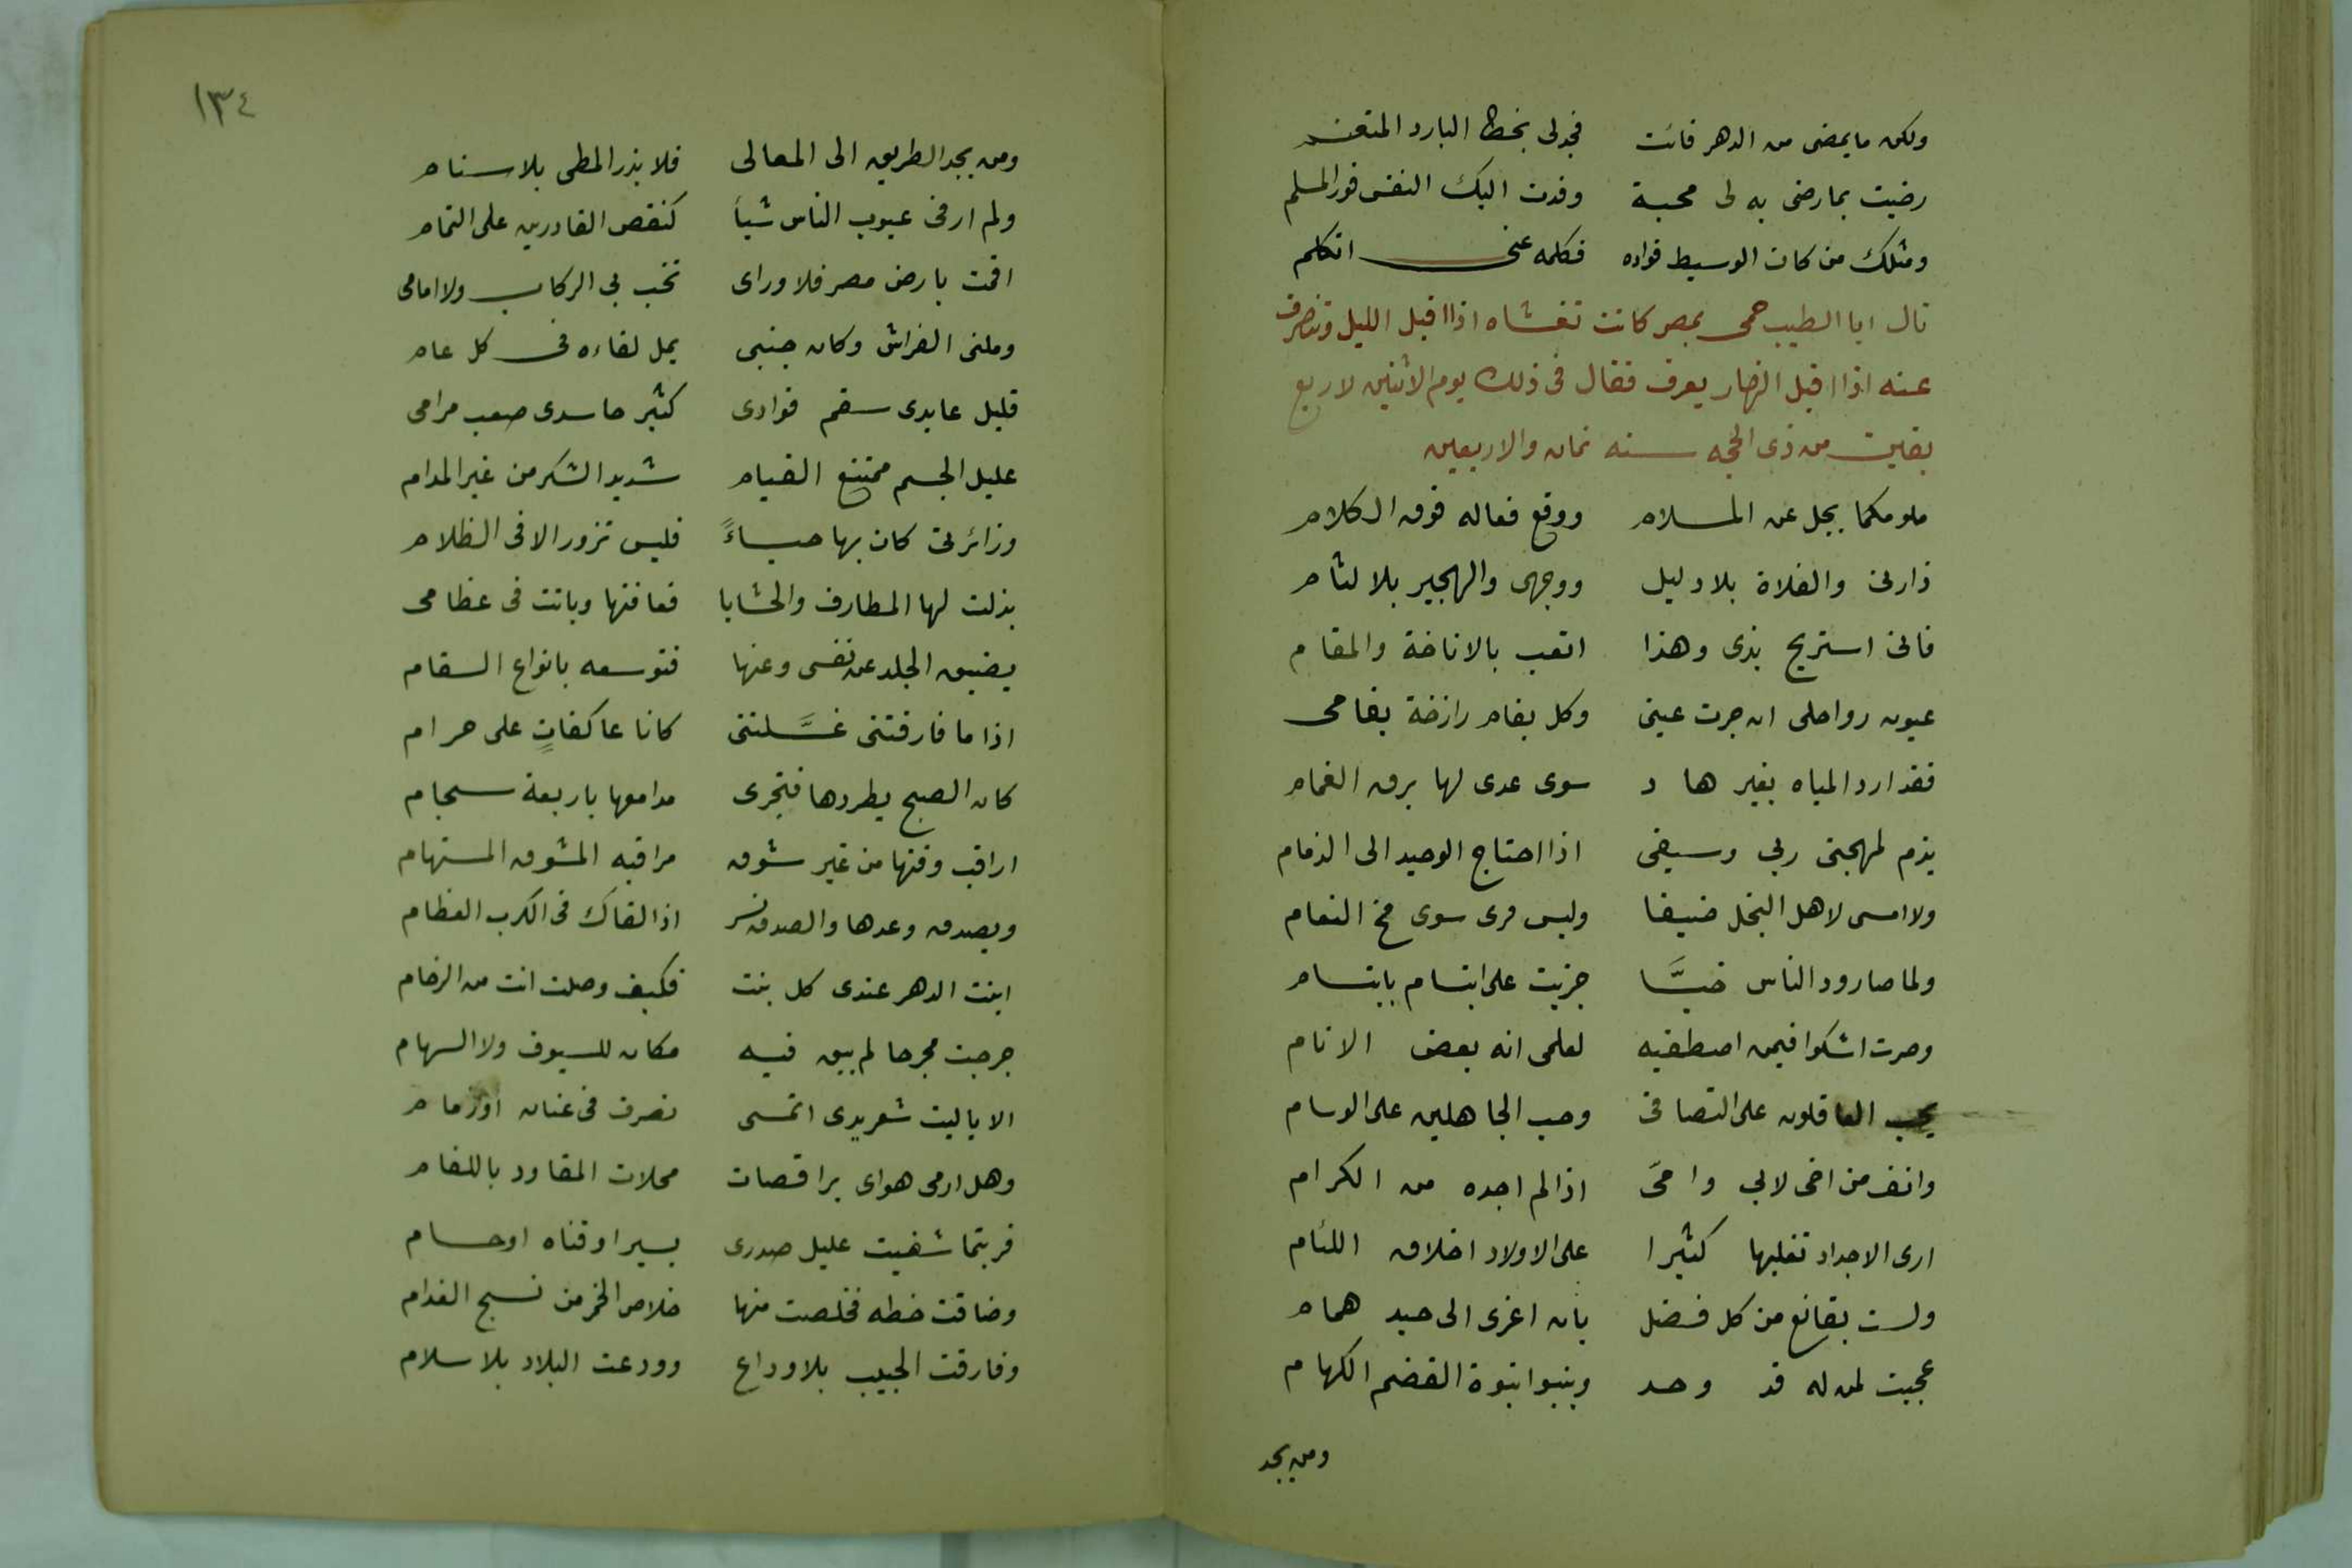 ولكن ما يمضى من الدهر فائت فجد لى بخط البارد المتغنم
رضيت بما رضى به لى محبة وقدت اليك النفس قود المسلم
ومثلك من كان الوسيط فواده فكلمه عنى اتكلم
نال ابا الطيب حمى بمصر كانت تغشاه اذا اقبل الليل وتنصرف
عنه اذا اقبل النهار بعرق فقال فى ذلك يوم الاثنين لاربع
بقين من ذى الحجه سنه ثمان والاربعين
ملومكما يجل عن الملام ووقع فعاله فوق الكلام
ذارنى والفلاة بلا دليل ووجهى والهجير بلا لثام
فانى استريح بذى وهذا اتعب بالاناخة والمقام
عيون رواحلى ان حرت عينى وكل بغام رازخة بغامى
فقد ارد المياه بغير هاد سوى عدى لها برق الغمام
يذم لمهجتى ربى وسيفى اذا احتاج الوحيد الى الذمام
ولا امسى لاهل البخل ضيفا وليس قرى سوى مخ النعام
ولما صار ود الناس خبَّا جزيت على ابتسام بابتسام
وصرت اشكوا فيمن اصطفيه لعلمى انه بعض الانام
يحب العاقلون على التصافى وحب الجاهلين على الوسام
وانف من اخى لابى وامى اذا لم اجده من الكرام
ارى الاجداد تغلبها كثيرا على الاولاد اخلاق اللئام
ولست بقانع من كل فضل بان اعزى الى جد همام
عجبت لمن له قد وحد وينبوا نبوة القضم الكهام
ومن يجد
١٣٤
ومن يجد الطريق الى المعالى فلا يذر المطى بلا سنام
ولم ار فى عيوب الناس شيأ كنقص القادرين على التمام
اقمت بارض مصر فلا وراى تخب بى الركاب ولا امامى
وملنى الفراش وكان جنبى يمل لقاءه فى كل عام
قليل عايدى سقم فوادى كثير حاسدى صعب مرامى
عليل الجسم ممتنع القيام شديد السكر من غير المدام
وزائرتى كان بها حياءً فليس تزور الا فى الظلام
بذلت لها المطارف والحشايا فعافتها وباتت فى عظامى
يضيق الجلد عن نفسى وعنها فتوسعه بانواع السقام
اذا ما فارقتنى غسَّلتنى كانا عاكفانٍ على حرام
كان الصبح يطردها فتجرى مدامعها باربعة سجام
اراقب وقتها من غير شوق مراقبه المشوق المستهام
ويصدق وعدها والصدق شر اذا القاك فى الكرب العظام
ابنت الدهر عندى كل بنت فكيف وصلت انت من الزحام
جرحت مجرحا لم يبق فيه مكان للسيوف ولا السهام
الا ياليت شعر يدى اتمسى تصرف فى عنان او زمام
وهل ارمى هواى براقصات محلات المقاود باللغام
فربتما شفيت عليل صدرى بسير او قناه او حسام
وضاقت خطه فخلصت منها خلاص الخمر من نسج الفدام
وفارقت الحبيب بلا وداع وودعت البلاد بلا سلام